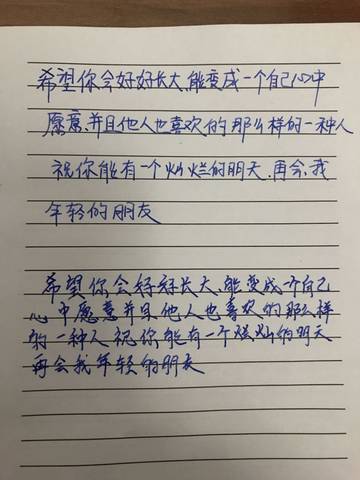 希望你会好好长大、能变成一个自己心中
愿意、并且他人也喜欢的那么样的一种人
祝你能有一个灿烂的明天、再会、我
年轻的朋友
希望你会好好长大、能变成一个自己
心中愿意并且他人也喜欢的那么样
的一种人祝你能有一个灿烂的明天
再会我年轻的朋友